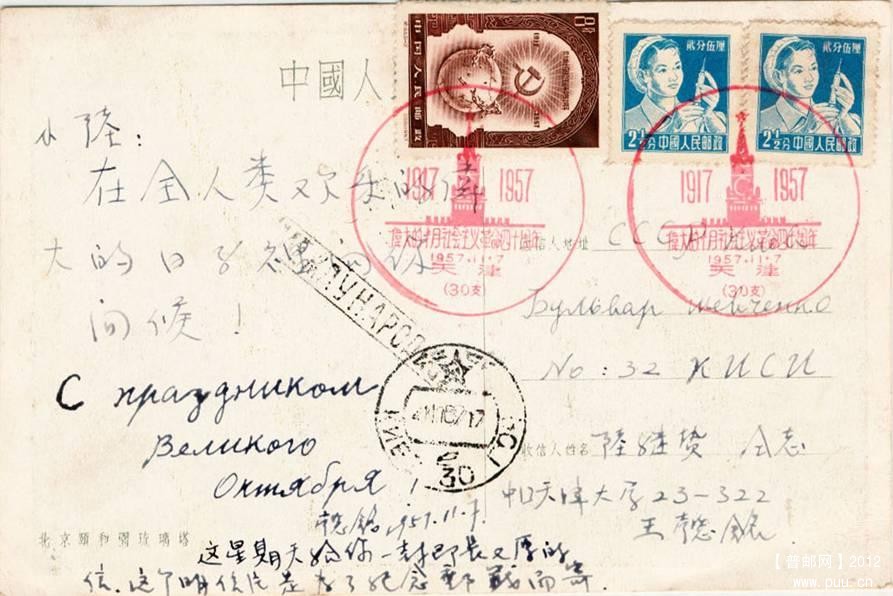 中國人
8分
中国人民邮政
1917
1957
贰分伍厘
2½分 中國人民邮政
贰分伍厘
2½分 中國人民邮政
1917 1957
偉大的十月社会主义革命四十周年
1957.11.7
天津
(30支)
1917 1957
偉大的十月社会主义革命四十周年
1957.11.7
天津
(30支)
小陸：
在全人类欢乐的偉
大的日子
问候！
С праздником
Великого
Октября!
1957.11.7.
这星期天给你一封即長又厚的
信.这个明信片是为了纪念郵戳而寄.
北京頤和園琉璃塔
收信人地址 СССР Киев
Бульвар Шевченко
No: 32 КИСИ
收信人姓名 陸继贽 仝志
中国天津大学23-322
30
【普邮网】2012
www.puu.cn